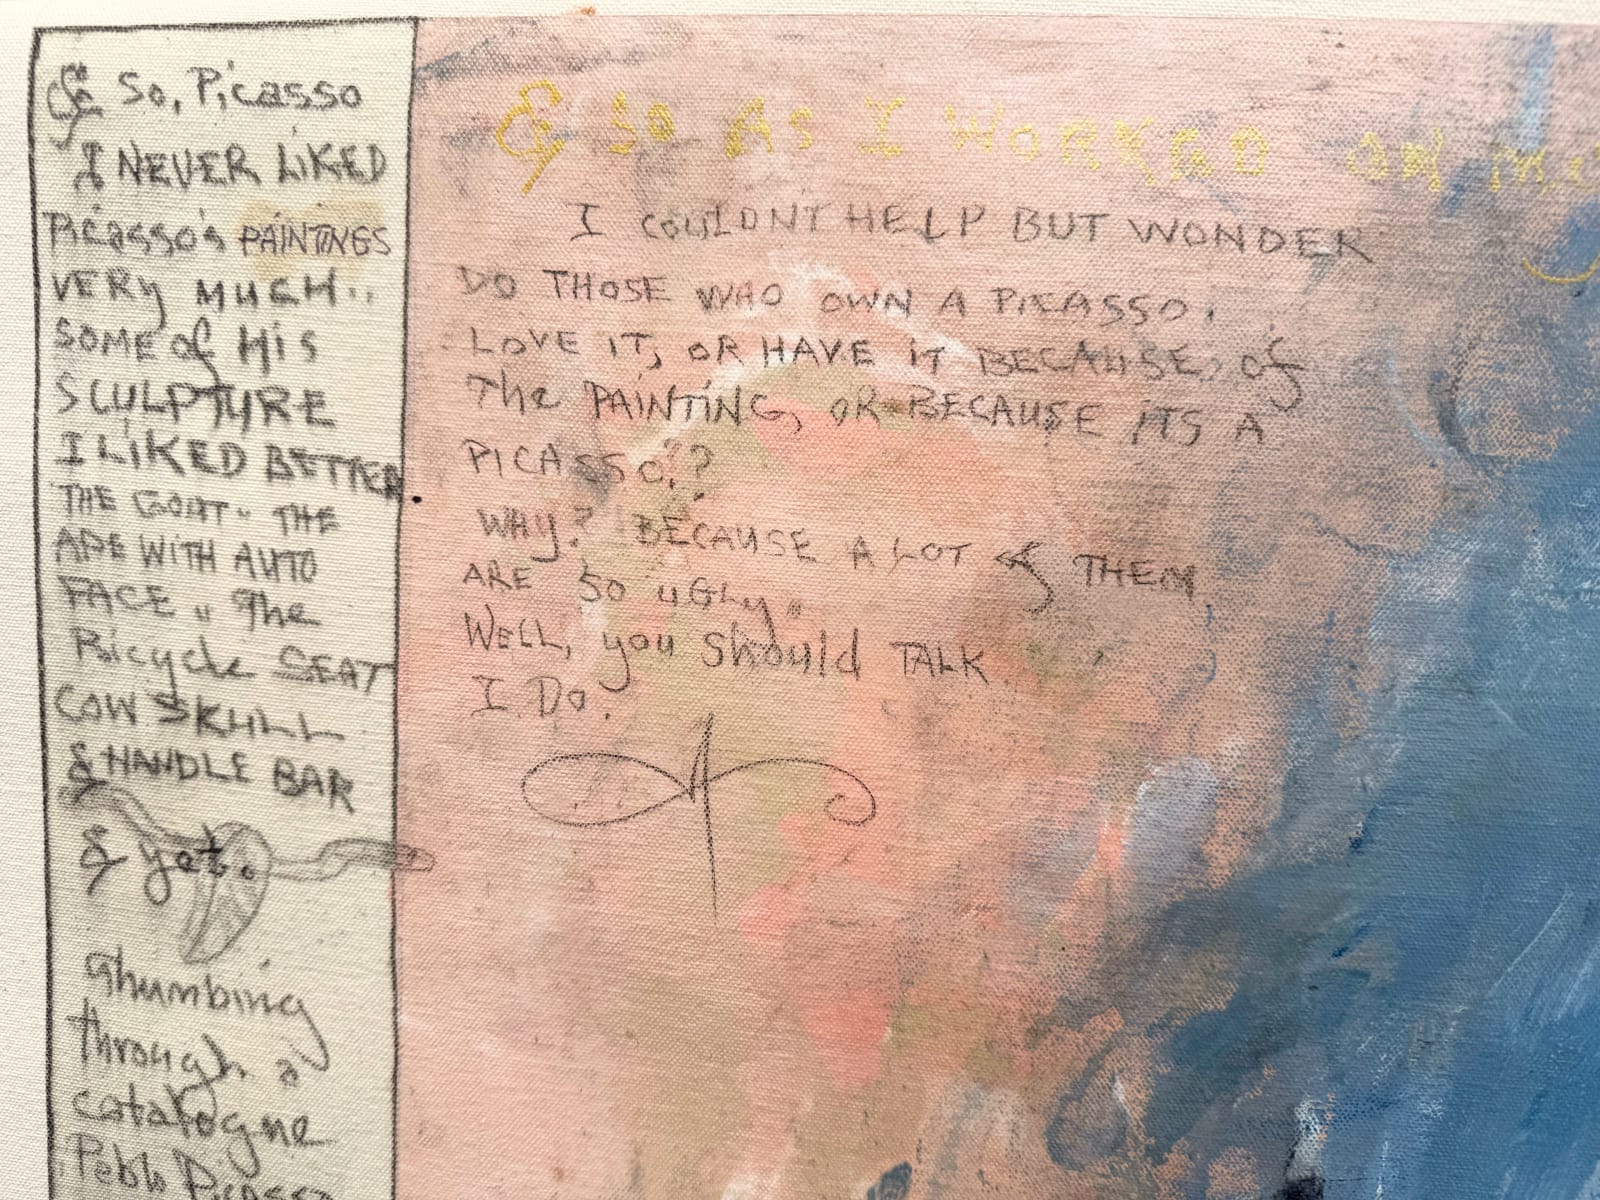 & So, Picasso
I NEVER LIKED
Picasso's PAINTINGS
VERY MUCH..
SOME of HIS
SCULPTURE
I LIKED BETTER
THE GOAT.. THE
APE WITH AUTO
FACE.. The
Bicycle SEAT
COW SKULL
& HANDLE BAR
& yet.
Thumbing
through a
catalogne
Peblo Picasso
& SO AS I WORKED ON
I COULDNT HELP BUT WONDER
DO THOSE WHO OWN A PICASSO.
LOVE IT, OR HAVE iT BECAUSE of
The PAINTING, OR BECAUSE ITS A
PICASSO.?
WHY? BECAUSE A LOT of THEM
ARE SO UGLY.
WELL, you Should TALK
I DO.